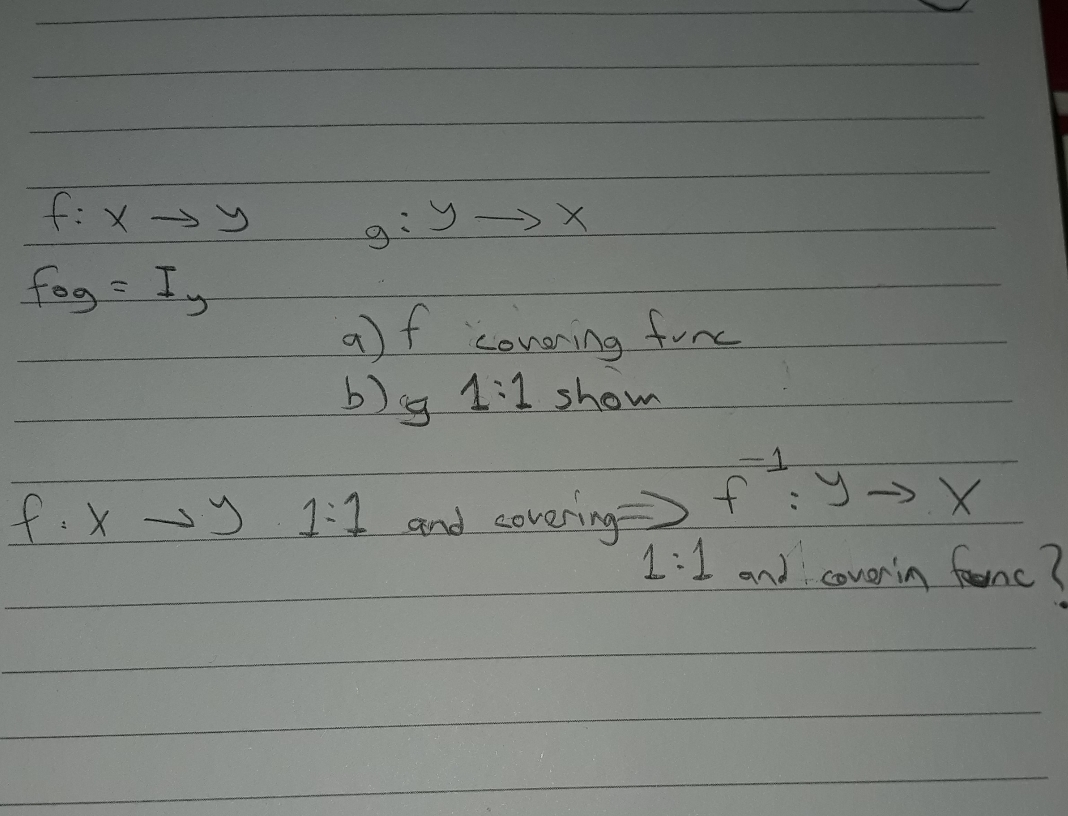 f: x → y g: y → x
fog = I_y
a) f covering func
b) g 1:1 show
f: x → y 1:1 and covering ⇒ f⁻¹: y → x
1:1 and coverin func?